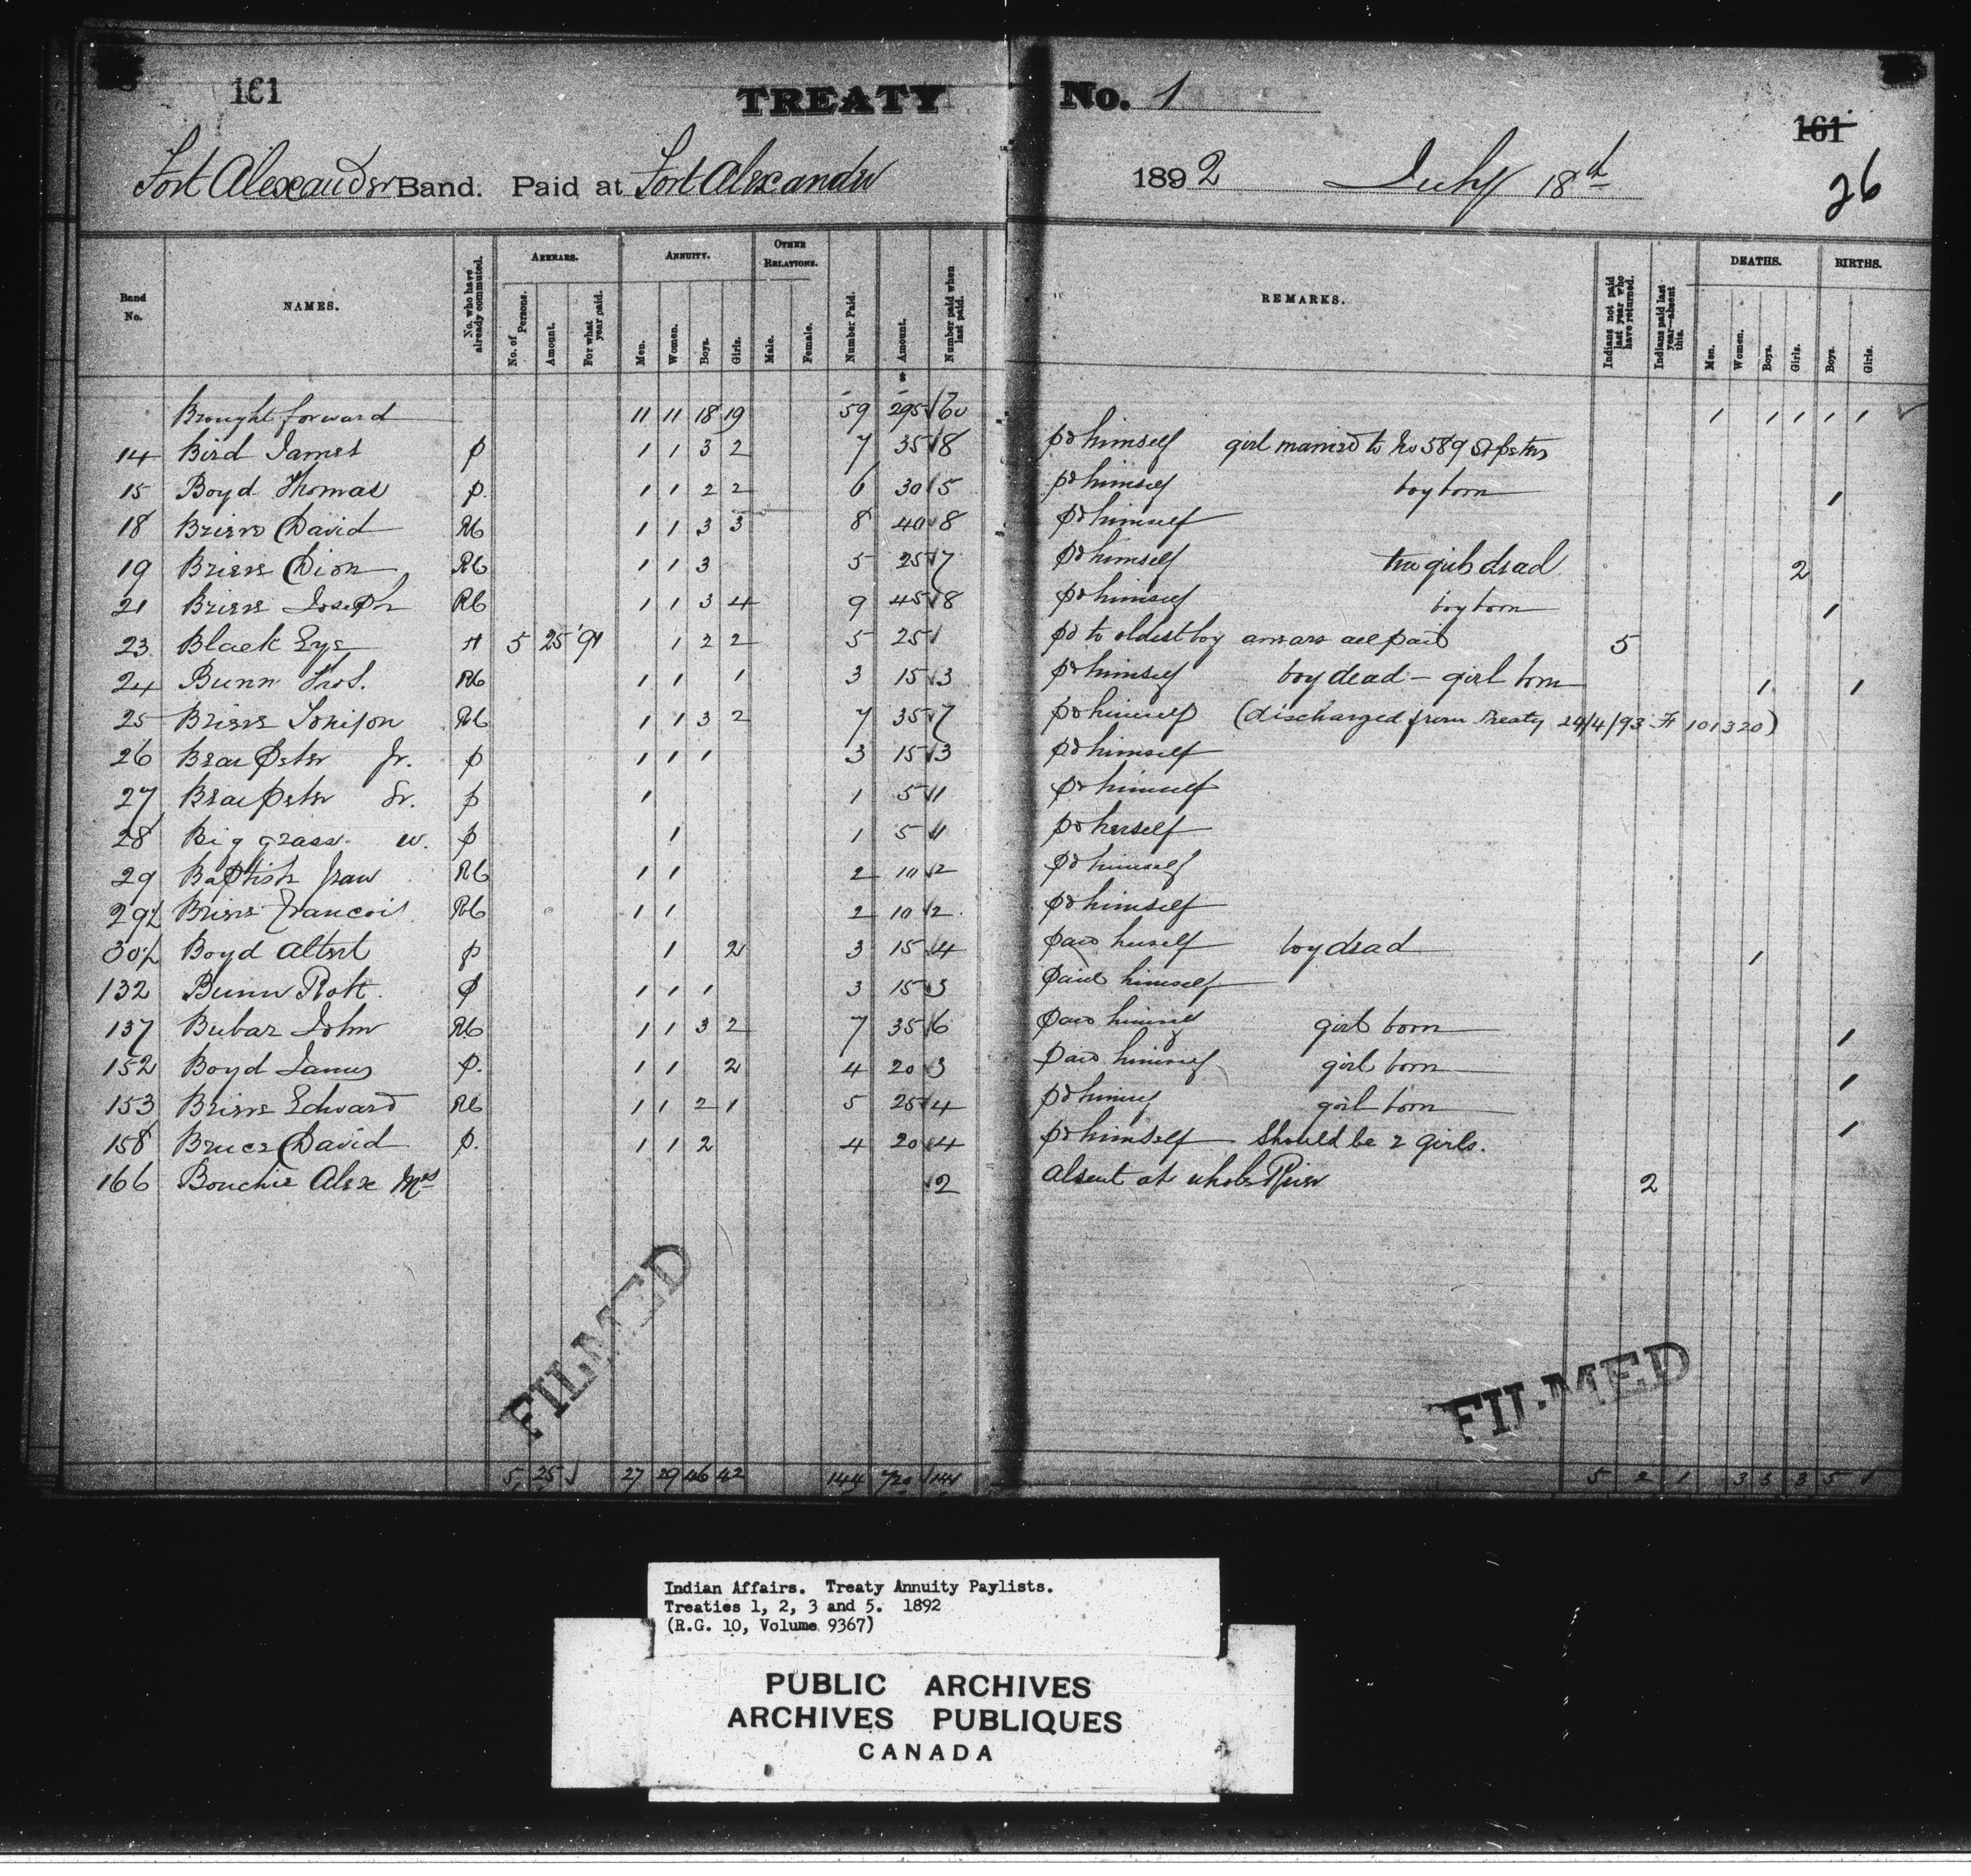 161 TREATY No. 1 161
Fort Alexander Band. Paid at Fort Alexander 1892 July 18th 26
Band No. NAMES. No. who have already commuted. ARREARS. No. of Persons. Amount. For what year paid. ANNUITY. Men. Women. Boys. Girls. OTHER RELATIONS. Male. Female. Number Paid. Amount. Number paid when last paid. REMARKS. Indians not paid last year who have returned. Indians paid last year—absent this. DEATHS. Men. Women. Boys. Girls. BIRTHS. Boys. Girls.
Brought forward 11 11 18 19 59 295 60 1 1 1 1 1
14 Bird James p 1 1 3 2 7 35 8 pd himself girl married to No 589 St peters
15 Boyd Thomas p. 1 1 2 2 6 30 5 pd himself boy born 1
18 David RC 1 1 3 3 8 40 8 pd himself
19 Dion RC 1 1 3 5 25 7 pd himself two girls dead 2
21 Joseph RC 1 1 3 4 9 45 8 pd himself boy born 1
23 Black Eye H 5 25 '91 1 2 2 5 25 pd to oldest boy arrears all paid 5
24 Bunn Thos. RC 1 1 1 3 15 3 pd himself boy dead – girl born 1 1
25 RC 1 1 3 2 7 35 7 pd himself (discharged from Treaty 24/4/93 101320)
26 Bear Peter Jr. p 1 1 1 3 15 3 pd himself
27 Bear peter Sr. p 1 1 5 1 pd himself
28 Big grass. w. p 1 1 5 1 pd herself
29 Baptish RC 1 1 2 10 2 pd himself
29½ Francois RC 1 1 2 10 2 pd himself
30½ Boyd Albert p 1 2 3 15 4 paid herself boy dead 1
132 Bunn Robt. p 1 1 1 3 15 3 paid himself
137 Bubar John RC 1 1 3 2 7 35 6 paid himself girl born 1
152 Boyd James p. 1 1 2 4 20 3 Paid himself girl born 1
153 Edward RC 1 1 2 1 5 25 4 pd himself girl born 1
158 Bruce David p. 1 1 2 4 20 4 pd himself Should be 2 girls.
166 Bouchie Alex Mrs 2 absent at River 2
FILMED FILMED
5 25 27 29 46 42 144 720 144 5 2 1 3 3 3 5 1
Indian Affairs. Treaty Annuity Paylists.
Treaties 1, 2, 3 and 5. 1892
(R.G. 10, Volume 9367)
PUBLIC ARCHIVES
ARCHIVES PUBLIQUES
CANADA